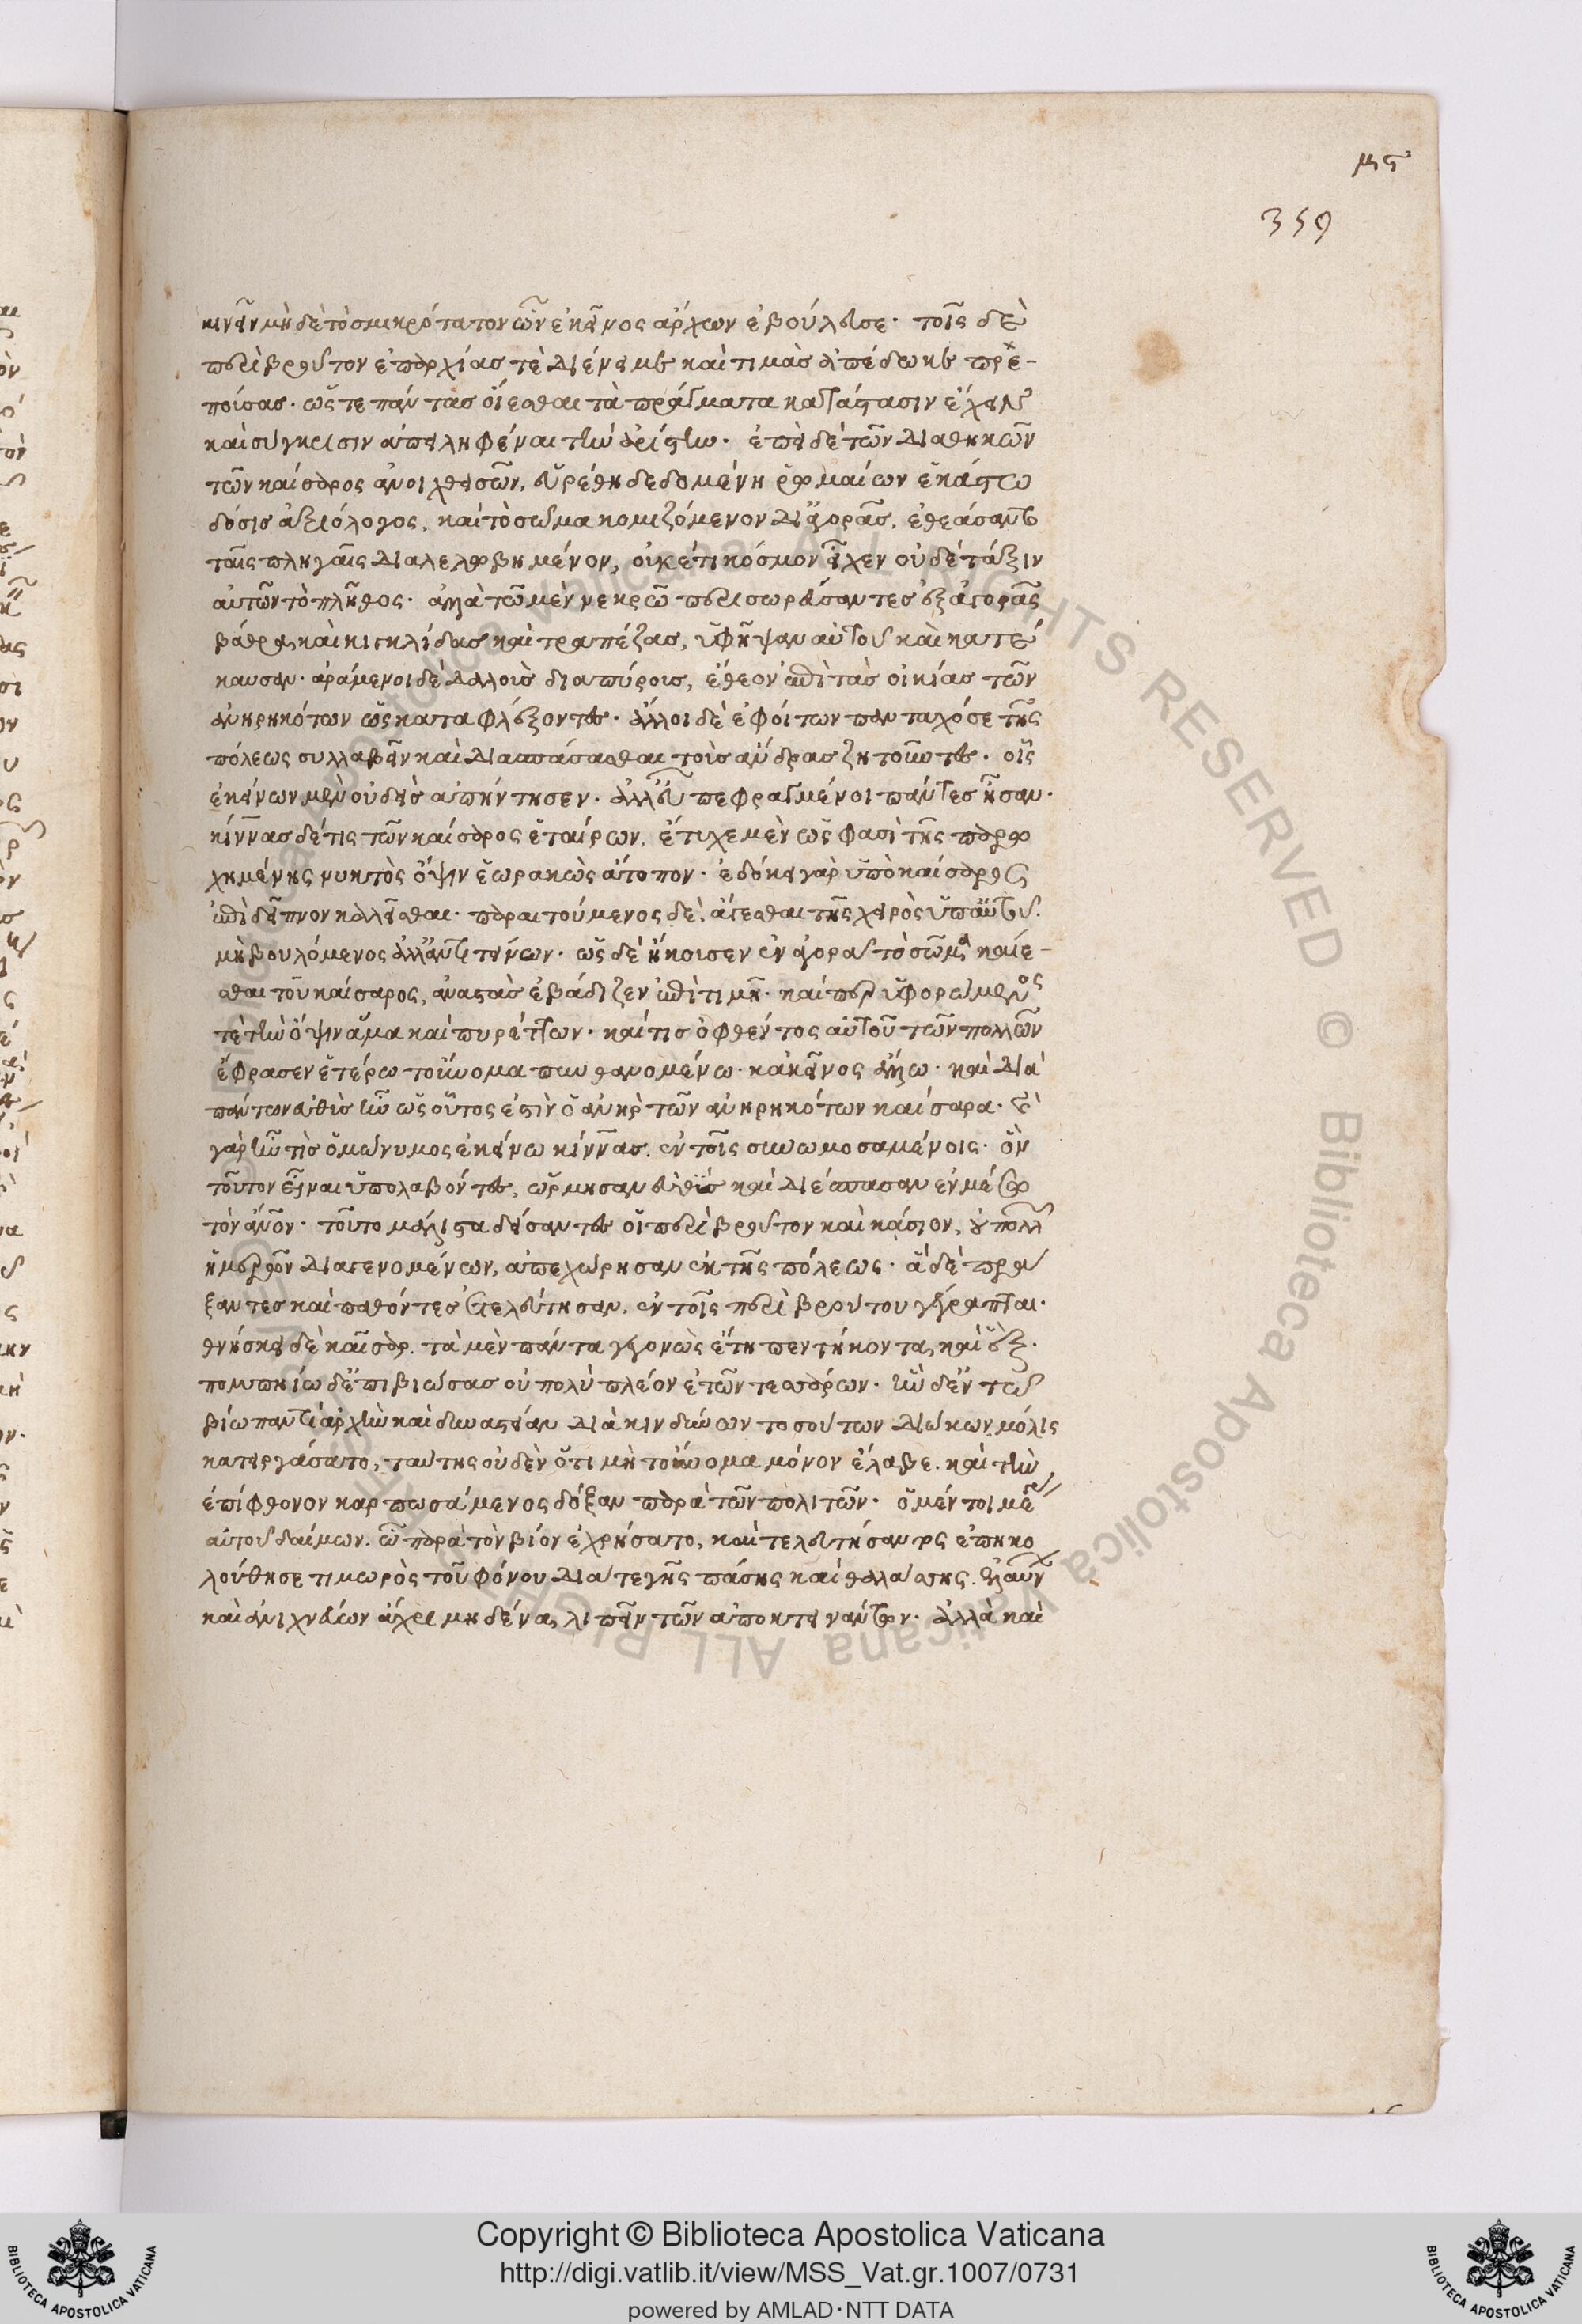 μς
359
κινεῖν μὴ δὲ τὸ σμικρότατον ὧν ἐκεῖνος ἄρχων ἐβούλευσε. τοῖς δὲ
περὶ βροῦτον ἐπαρχίας τὲ διένειμε καὶ τιμὰς ἀπέδωκε πρε-
πούσας. ὥς τε πάντας οἴεσθαι τὰ πράγματα κατάστασιν ἔχειν
καὶ σύγκρισιν ἀπειληφέναι τὴν ἀρίστην. ἐπεὶ δὲ τῶν διαθηκῶν
τῶν καίσαρος ἀνοιχθεισῶν, εὑρέθη δεδομένη ῥωμαίων ἑκάστω
δόσις ἀξιόλογος, καὶ τὸ σῶμα κομιζόμενον δι' ἀγορᾶς, ἐθεάσαντο
ταῖς πληγαῖς διαλελωβημένον, οὐκέτι κόσμον εἶχεν οὐδὲ τάξιν
αὐτῶν τὸ πλῆθος. ἀλλὰ τῶ μὲν νεκρῶ περισωρεύσαντες ἐξ ἀγορᾶς
βάθρα καὶ κιγκλίδας καὶ τραπέζας, ὑφῆψαν αὐτοῦ καὶ κατέ
καυσαν. ἀράμενοι δὲ δαλοὺς διαπύρους, ἔθεον ἐπὶ τὰς οἰκίας τῶν
ἀνῃρηκότων ὡς καταφλέξοντες. ἄλλοι δὲ ἐφοίτων πανταχόσε τῆς
πόλεως συλλαβεῖν καὶ διασπάσασθαι τοὺς ἄνδρας ζητοῦντες. οἷς
ἐκείνων μὲν οὐδεὶς ἀπήντησεν. ἀλλ' εὖ πεφραγμένοι πάντες ἦσαν.
κίννας δέ τις τῶν καίσαρος ἑταίρων, ἔτυχε μὲν ὥς φασὶ τῆς παρῳ
χημένης νυκτὸς ὄψιν ἑωρακὼς ἄτοπον. ἐδόκει γὰρ ὑπὸ καίσαρος
ἐπὶ δεῖπνον καλεῖσθαι. παραιτούμενος δὲ, ἄγεσθαι τῆς χειρὸς ὑπ' αὐτοῦ.
μὴ βουλόμενος ἀλλ' ἀντιτείνων. ὡς δὲ ἤκουσεν ἐν ἀγορᾶ τὸ σῶμα καίε-
σθαι τοῦ καίσαρος, ἀναστὰς ἐβάδιζεν ἐπὶ τιμῆ. καίπερ ὑφορώμενος
τὲ τὴν ὄψιν ἅμα καὶ πυρέττων. καί τις ὀφθέντος αὐτοῦ τῶν πολλῶν
ἔφρασεν ἑτέρω τοὔνομα πυνθανομένω. κἀκεῖνος ἄλλω. καὶ διὰ
πάντων εὐθὺς ἦν ὡς οὗτος ἐστὶν ὁ ἀνὴρ τῶν ἀνῃρηκότων καίσαρα. καὶ
γὰρ ἦν τὶς ὁμώνυμος ἐκείνω κίννας. ἐν τοῖς συνωμοσαμένοις. ὃν
τοῦτον εἶναι ὑπολαβόντες, ὥρμησαν εὐθὺς καὶ διέσπασαν ἐν μέσω
τὸν ἄνον. τοῦτο μάλιστα δείσαντες οἱ περὶ βροῦτον καὶ κάσιον, οὐ πολλ
ἡμερῶν διαγενομένων, ἀπεχώρησαν ἐκ τῆς πόλεως. ἃ δὲ πρά
ξαντες καὶ παθόντες ἐτελεύτησαν, ἐν τοῖς περὶ βρούτου γέγραπται.
θνήσκει δὲ καῖσαρ. τὰ μὲν πάντα γεγονὼς ἔτη πεντήκοντα, καὶ ἕξ.
πομπηίω δ' ἐπιβιώσας οὐ πολὺ πλέον ἐτῶν τεσσάρων. ἣν δ' ἐν τῶ
βίω παντὶ ἀρχὴν καὶ δυναστείαν διὰ κινδύνων τοσούτων διώκων μόλις
κατειργάσατο, ταύτης οὐδὲν ὅτι μὴ τοὔνομα μόνον ἔλαβε. καὶ τὴν
ἐπίφθονον καρπωσάμενος δόξαν παρὰ τῶν πολιτῶν. ὁ μέντοι μέγας
αὐτοῦ δαίμων. ᾧ παρὰ τὸν βίον ἐχρήσατο, καὶ τελευτήσαντος ἐπηκο
λούθησε τιμωρὸς τοῦ φόνου διά τε γῆς πάσης καὶ θαλάσσης. ἐλαύνων
καὶ ἀνιχνεύων ἄχρι μηδένα λιπεῖν τῶν ἀποκτεινάντων. ἀλλὰ καὶ
Copyright © Biblioteca Apostolica Vaticana
http://digi.vatlib.it/view/MSS_Vat.gr.1007/0731
powered by AMLAD·NTT DATA